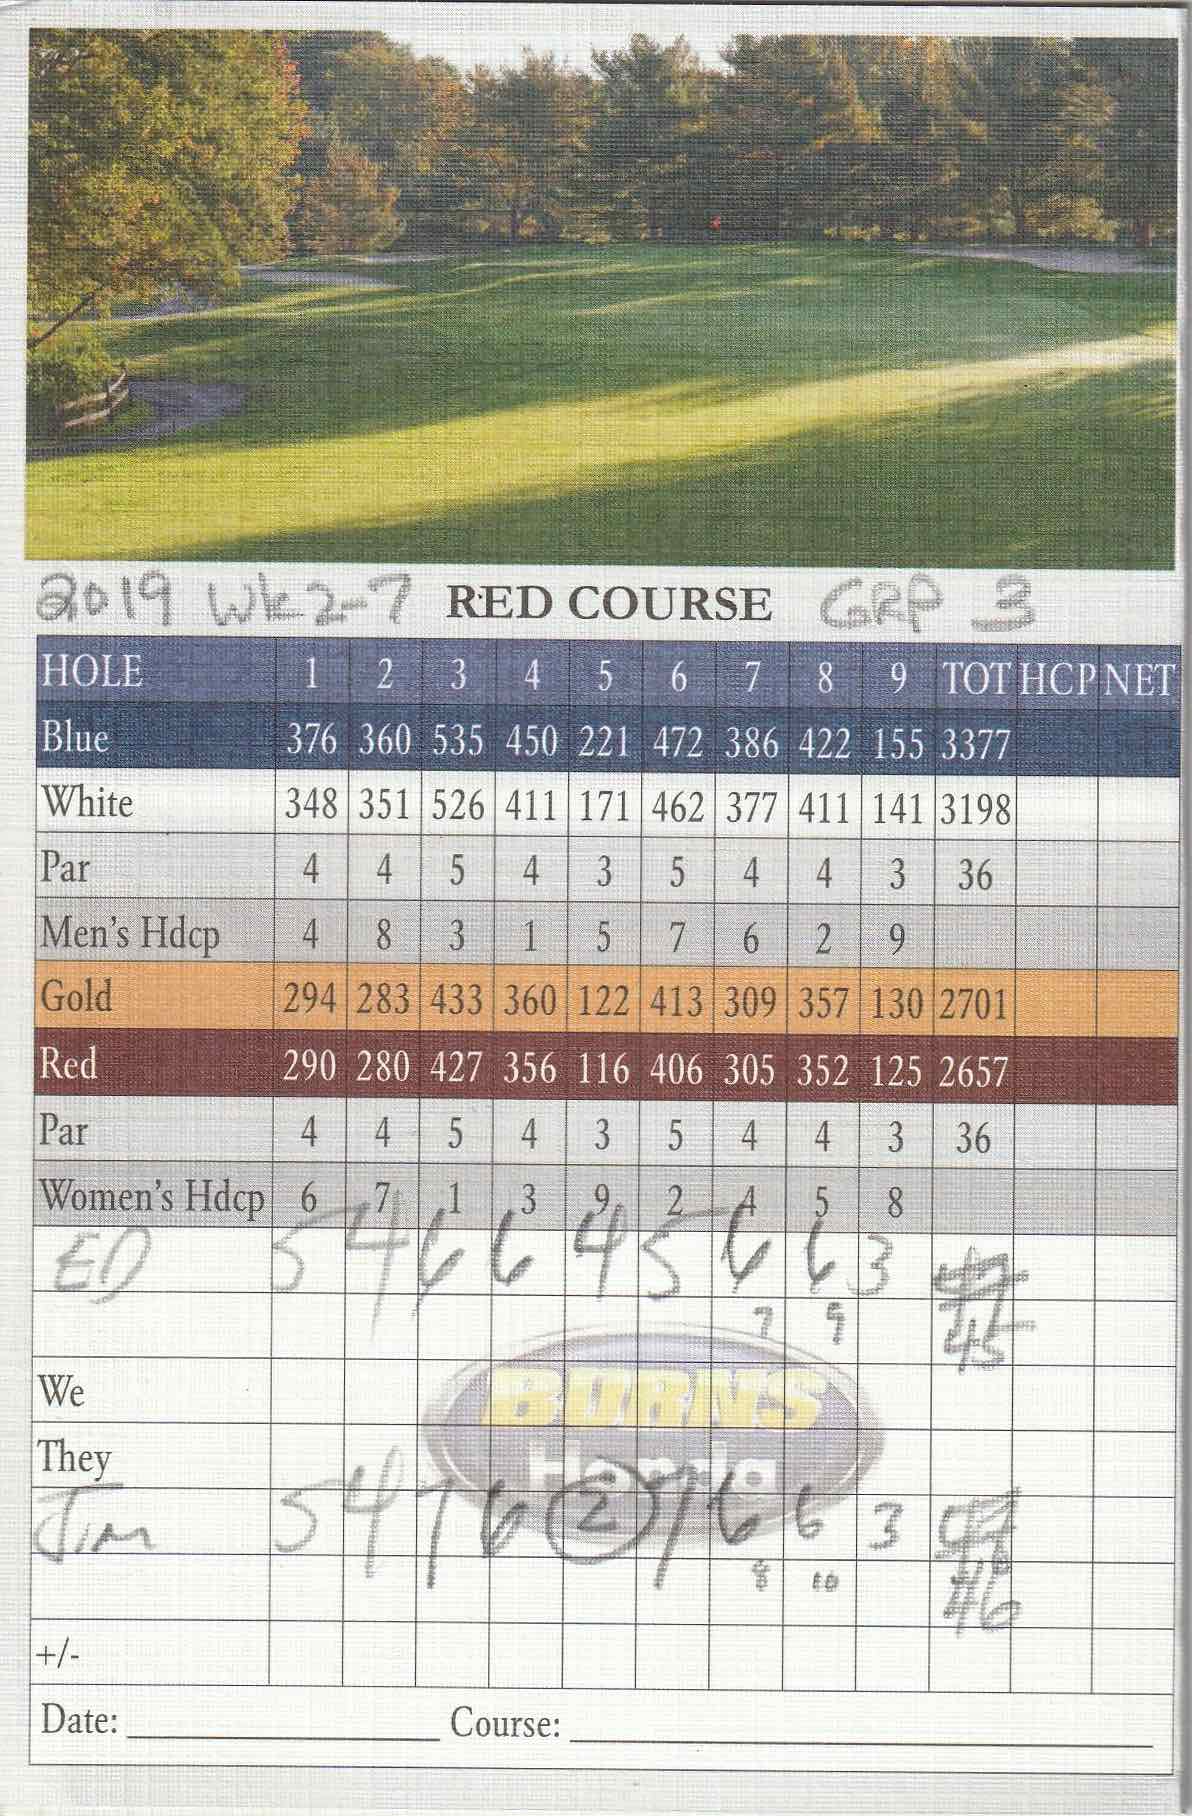 2019 Wk2-7 RED COURSE GRP 3
HOLE 1 2 3 4 5 6 7 8 9 TOT HCP NET
Blue 376 360 535 450 221 472 386 422 155 3377
White 348 351 526 411 171 462 377 411 141 3198
Par 4 4 5 4 3 5 4 4 3 36
Men's Hdcp 4 8 3 1 5 7 6 2 9
Gold 294 283 433 360 122 413 309 357 130 2701
Red 290 280 427 356 116 406 305 352 125 2657
Par 4 4 5 4 3 5 4 4 3 36
Women's Hdcp 6 7 1 3 9 2 4 5 8
ED 5 4 6 6 4 5 6 6 3
7 9 45
BURNS
We
Honda
They
Jim 5 4 7 6 2 7 6 6 3
8 10 46
+/-
Date: Course: